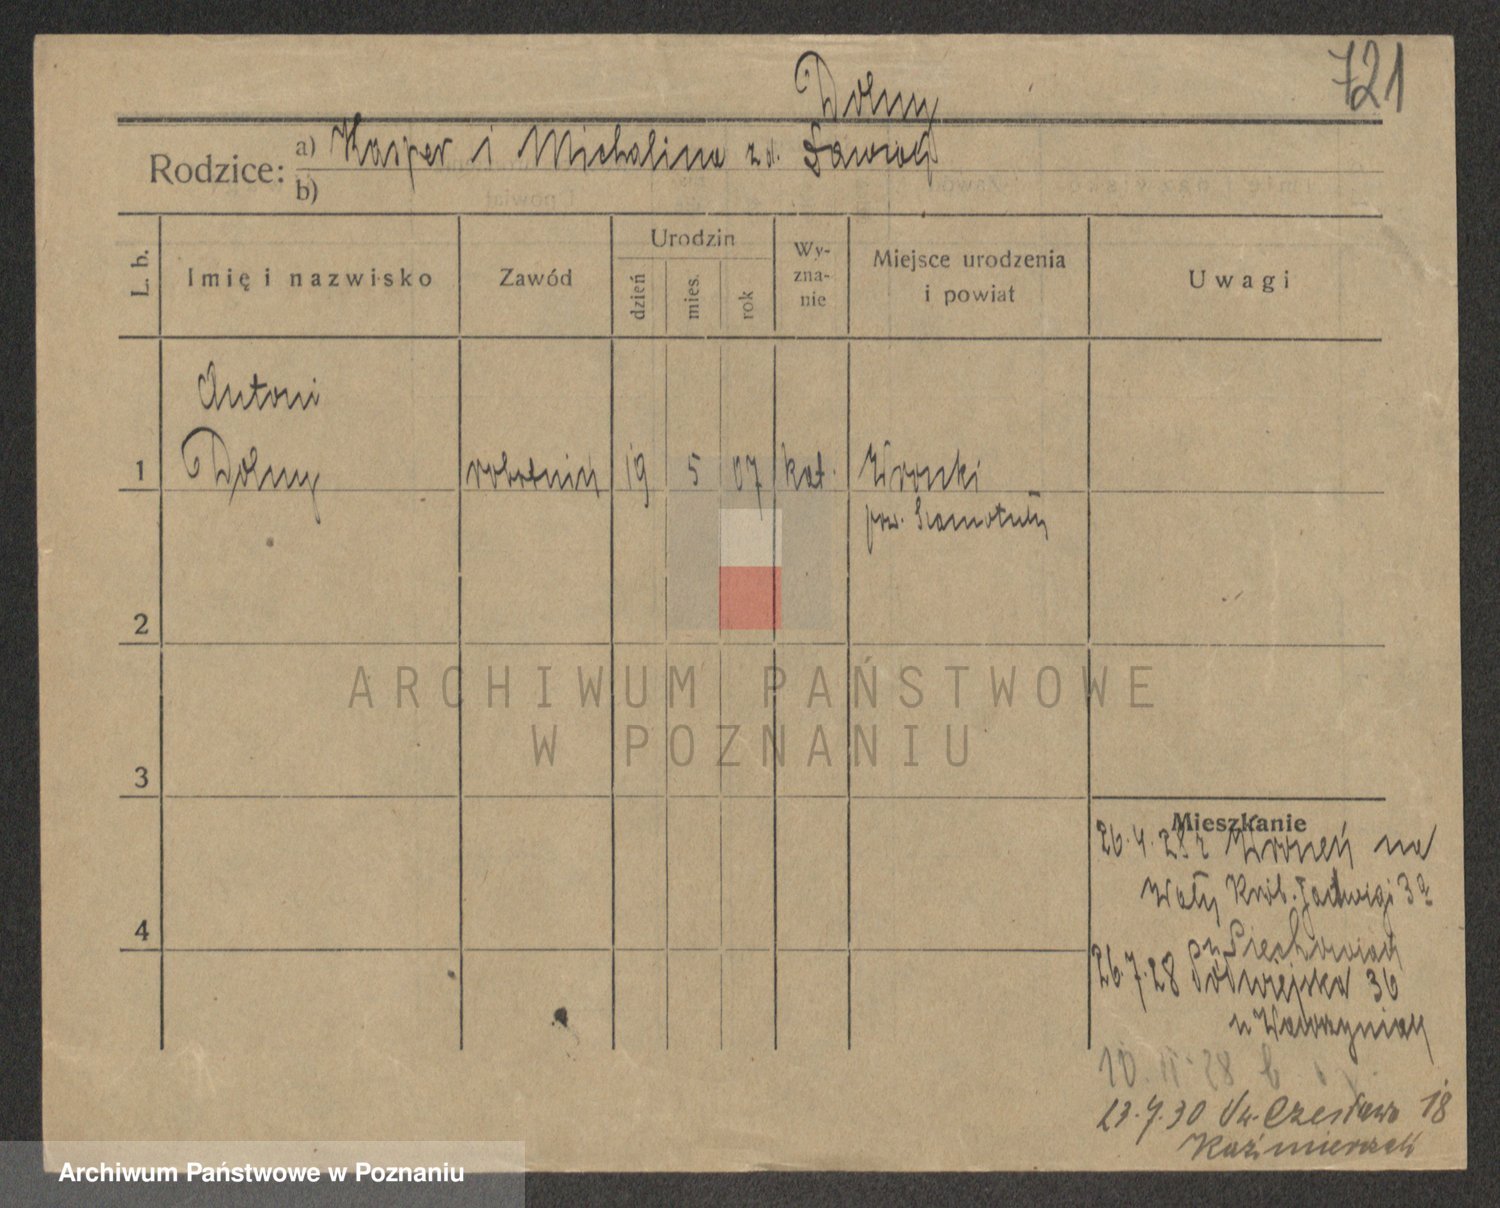 721
Dolny
Rodzice: a) Kasper i Michalina z d. Nawrot
b)
L. b.
Imię i nazwisko
Zawód
Urodzin
dzień
mies.
rok
Wy-
zna-
nie
Miejsce urodzenia
i powiat
Uwagi
Antoni
1 Dolny robotnik 19 5 07 kat. Wronki
pow. Szamotuły
2
3
4
Mieszkanie
26.4.28 z Wronek na
Wały Król. Jadwigi 3a
u Piechowiak
26.7.28 36
u Wawrzyniak
23.7.30 Św. Czesława 18
Kaźmierczak
ARCHIWUM PAŃSTWOWE
W POZNANIU
Archiwum Państwowe w Poznaniu